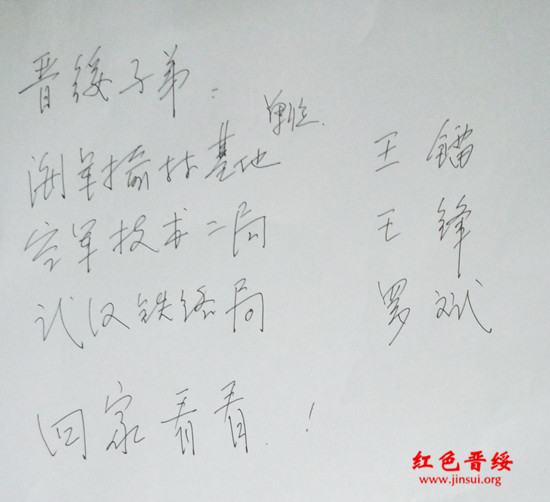 晋绥子弟：
海军榆林基地 单位.
空军技术二局
武汉铁路局
王镭
王锋
罗斌
回家看看！
红色晋绥
www.jinsui.org